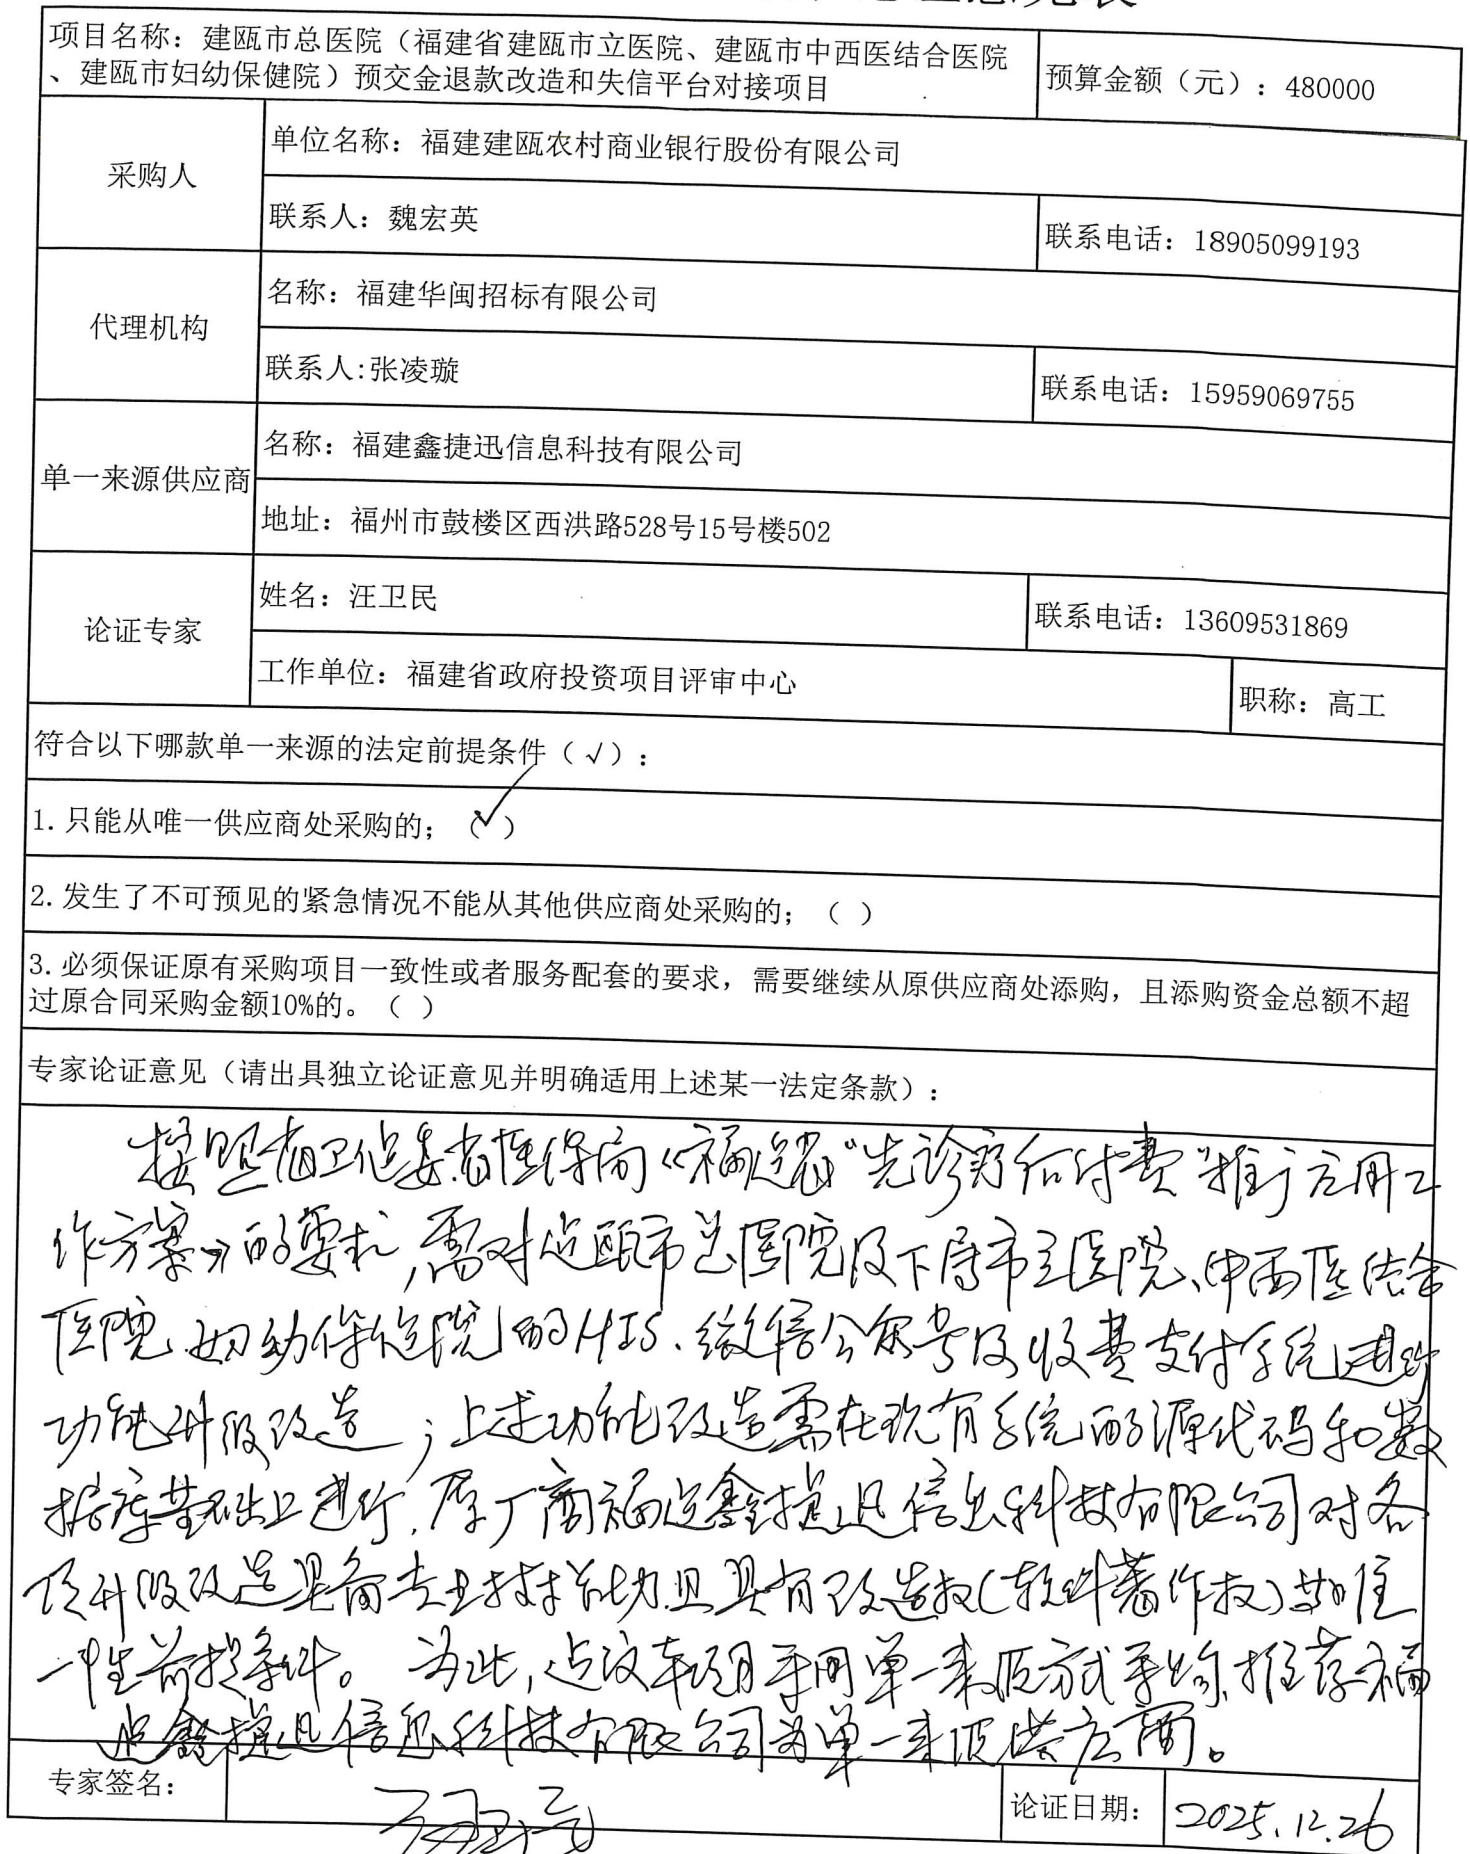 项目名称：建瓯市总医院（福建省建瓯市立医院、建瓯市中西医结合医院
、建瓯市妇幼保健院）预交金退款改造和失信平台对接项目
预算金额（元）：480000
采购人
单位名称：福建建瓯农村商业银行股份有限公司
联系人：魏宏英
联系电话：18905099193
代理机构
名称：福建华闽招标有限公司
联系人:张凌璇
联系电话：15959069755
单一来源供应商
名称：福建鑫捷迅信息科技有限公司
地址：福州市鼓楼区西洪路528号15号楼502
论证专家
姓名：汪卫民
联系电话：13609531869
工作单位：福建省政府投资项目评审中心
职称：高工
符合以下哪款单一来源的法定前提条件（√）：
1.只能从唯一供应商处采购的；（✓）
2.发生了不可预见的紧急情况不能从其他供应商处采购的；（ ）
3.必须保证原有采购项目一致性或者服务配套的要求，需要继续从原供应商处添购，且添购资金总额不超
过原合同采购金额10%的。（ ）
专家论证意见（请出具独立论证意见并明确适用上述某一法定条款）：
按照省卫健委、省医保局《福建省“先诊疗后付费”推广应用工
作方案》的要求，需对建瓯市总医院及下属市立医院、中西医结合
医院、妇幼保健院的HIS、微信公众号及收费支付系统进行
功能升级改造；上述功能改造需在现有系统的源代码和数
据库基础上进行，原厂商福建鑫捷迅信息科技有限公司对各
项升级改造具备专业技术能力且具有改造权（软件著作权）等唯
一性前提条件。为此，建议本项目采用单一来源方式采购，推荐福
建鑫捷迅信息科技有限公司为单一来源供应商。
专家签名：
汪卫民
论证日期：
2025.12.26